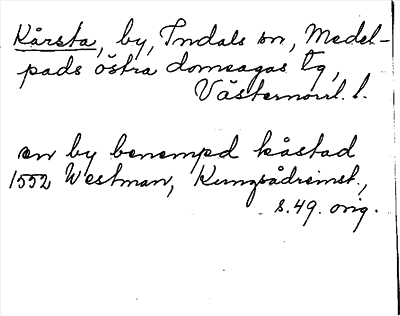 Kårsta, by, Indals sn, Medel-
pads östra domsagas tg,
Västernorrl. l.
en by benempd kåstad
1552 Westman, Kungsådreinst.,
s. 49. orig.